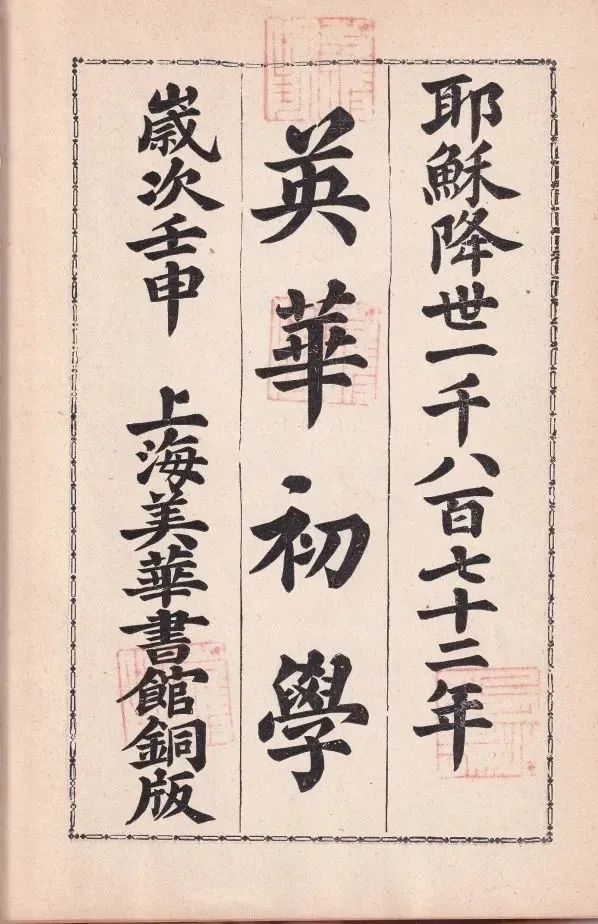 耶穌降世一千八百七十二年
英華初學
歲次壬申 上海美華書館銅版